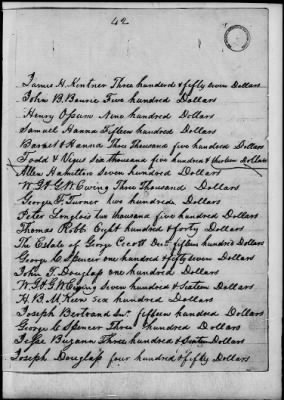 42
James H. Kintner Three hunderd & fifty seven Dollars
John B. Bourie Five hundred Dollars
Henry Ossum Nine hundred Dollars
Samuel Hanna Fifteen hundred Dollars
Barnet & Hanna Three Thousand five hundred Dollars
Todd & Vigus Six thousand five hundred & thirteen Dollars
Allen Hamilton Seven hundred Dollars
W. G. & G. W. Ewing Three Thousand Dollars
George F. Turner two hundrede Dollars
Peter Longlois two thousand five hundred Dollars
Thomas Robb Eight hundred & forty Dollars
The Estate of George Decd. fifteen hundred Dollars
George C Spencer one hundred & fifty seven Dollars
John T. Douglass one hundred Dollars
W. G. & G. W. Ewing Seven hundred & Sixteen Dollars
H. B. McKeen six hundred Dollars
Joseph Bertrand Snr. fifteen hundred Dollars
George C Spencer Three hundred Dollars
Jesse Buzann Three hundred & Sixteen Dollars
Joseph Douglass four hundred & fifty Dollars